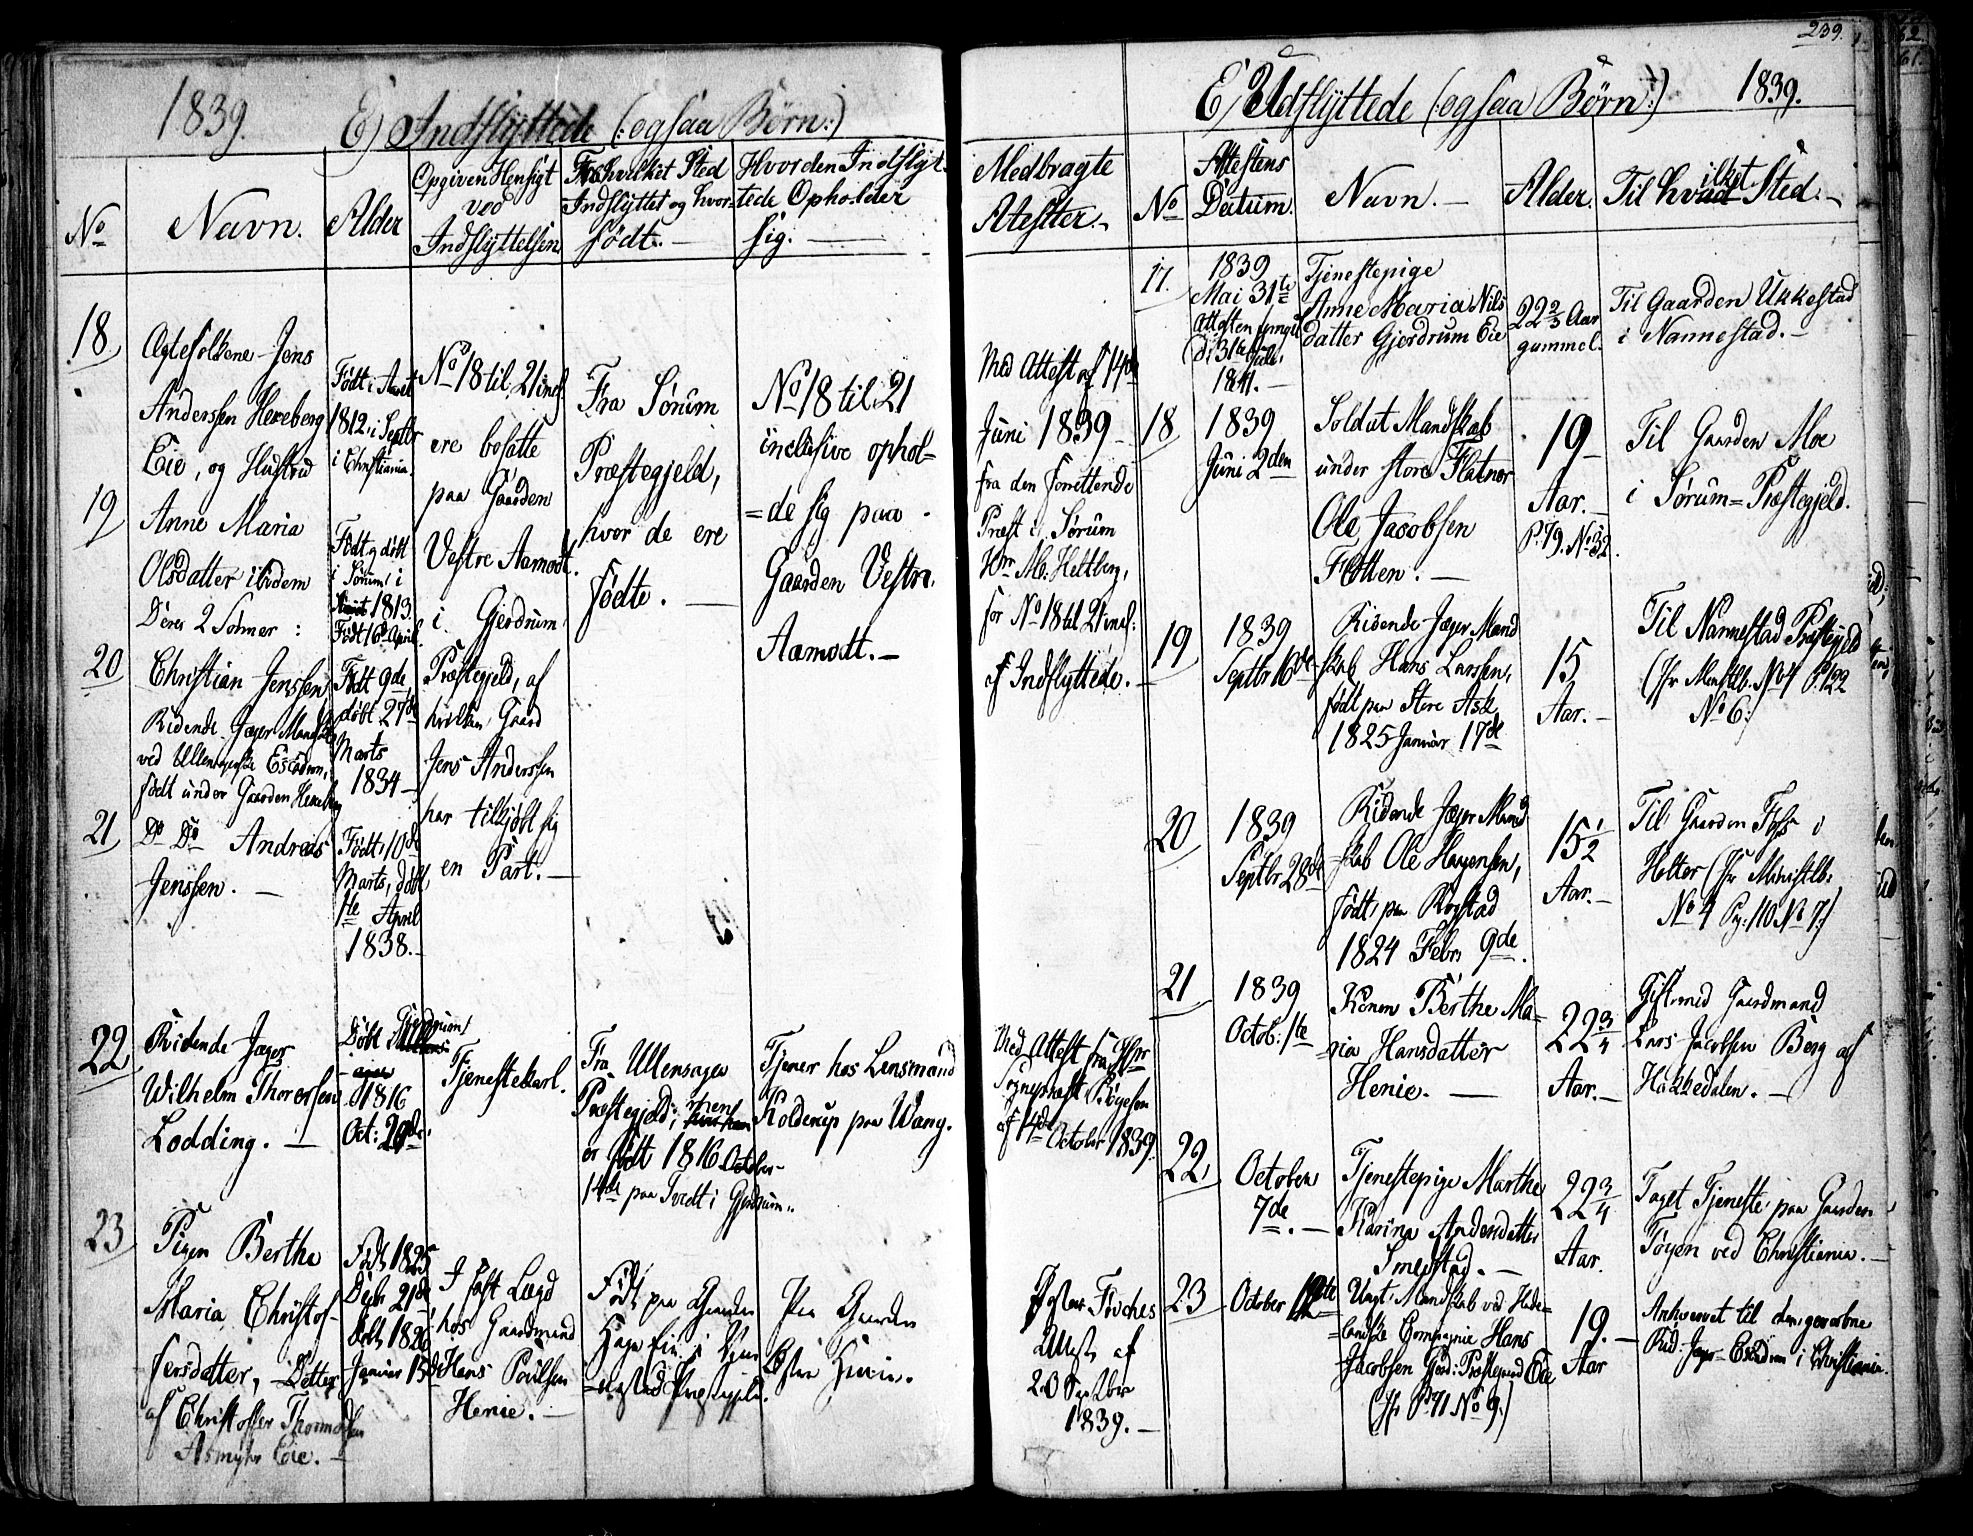 1839. E) Indflyttede (:ogsaa Børn:)
No
Navn.
Alder
Opgiven Hensigt
ved
Indflyttelsen
Fra hvilket Sted
Indflyttet og hvor
født. —
Hvor den Indflyt-
tede Opholder
sig. —
Medbragte
Atester. —
18
Ægtefolkene Jens
Anderssen Hexeberg
Eie, og Hustrue
Født i Aaret
1812, i Septbr
i Christiania.
19
Anne Maria
Olsdatter ibidem
Deres 2 Sønner :
Født og døbt
i Sørum i
1813.
Født 16de April.
20
Christian Jenssen
Ridende Jæger Mandskab
ved Ullensagerske Escadron,
født under Gaarden Hexeberg
Født 9de,
døbt 27de
Marts
1834 —
21
Do Do Andreas
Jenssen. —
Født 10de
Marts, døbt
1te April
1838. —
No 18 til 21 incl
ere bosatte
paa Gaarden
Vestre Aamodt
i Gjerdrum
Præstegjeld, af
hvilken Gaard
Jens Anderssen
har tilkjøbt sig
en Part. —
Fra Sørum
Præstegjeld,
hvor de ere
fødte. —
No 18 til 21
inclusive ophol-
=de sig paa
Gaarden Vestre
Aamodt. —
Med Attest af 14de
Juni 1839 —
fra den forrettende
Præst i Sørum
Hr. M: Heltberg,
for No 18 til 21 incl:
af Indflyttede. —
22
Ridende Jæger
Wilhelm Thorersen
Lodding. —
Døbt i Gjerdrum
1816
Oct: 20de.
Tjenestekarl.
Fra Ullensager
Præstegjeld; men
er født 1816 October
14de paa Tvedt i Gjerdrum.
Tjener hos Lensmand
Kolderup paa Wang.
Med Attest fra Hr
Sogneprest Bøyesen
af 14de October 1839.
23
Pigen Berthe
Maria Christof-
fersdatter, Datter
af Christoffer Thomassen
Asmyhr Eie. —
Født 1825
Decbr 21de
Døbt 1826
Januar 15de
I fast Lægd
hos Gaardmand
Hans Poulsen
Henie. —
Født paa Gaarden
Haga Eie i
Præstegjeld.
Paa Gaarden
Henie.
Pastor
Attest af
20 Septbr
1839. —
239.
E) Udflyttede (:ogsaa Børn:) 1839.
No
Attestens
Datum.
Navn. —
Alder.
Til hvilket Sted. —
17.
1839
Mai 31te
Attesten fornyet
d: 31te Juli
1841. —
Tjenestepige
Anne Maria Nils
datter Gjerdrum Eie
22 2/3 Aar
gammel.
Til Gaarden Ukkestad
i Nannestad. —
18
1839
Juni 2den
Soldat Mandskab
under store Flatner
Ole Jacobsen
Flatten. —
19 —
Aar. —
P. 79. No 32.
Til Gaarden Moe
i Sørum=Præstegjeld.
19
1839
Septbr 16de
Ridende Jæger Mand
skab Hans Larssen,
født paa Store Ask
1825 Januar 17de
15
Aar. —
Til Nannestad Præstegjeld
(Jfr Ministlb. No 4 P. 122
No 6:)
20
1839
Septbr 28de
Ridende Jæger Mand
skab Ole Haagensen,
født paa Rogstad
1824 Febr. 9de.
15 1/2
Aar. —
Til Gaarden Foss i
Holter (Jfr Ministlb:
No 4 Pg. 110. No 7:)
21
1839
Octob: 1te
Konen Berthe Ma-
=ria Hansdatter
Henie. —
22 3/4
Aar. —
Gift med Gaardmand
Lars Jacobsen Berg af
Hakkedalen. —
22
October
7de. —
Tjenestepige Marthe
Karine Andersdatter
Smestad. —
22 3/4
Aar.
Taget Tjeneste paa Gaarden
Tøyen ved Christiania. —
23
October 12te
Ungt Mandskab ved Hade-
=landske Compagnie Hans
Jacobsen Gjerd: Præstegaard Eie
(Jfr P. 71 No 9.)
19. —
Aar
Anhvervet til den gevorbne
Rid: Jæger=Escadron i Christiania.